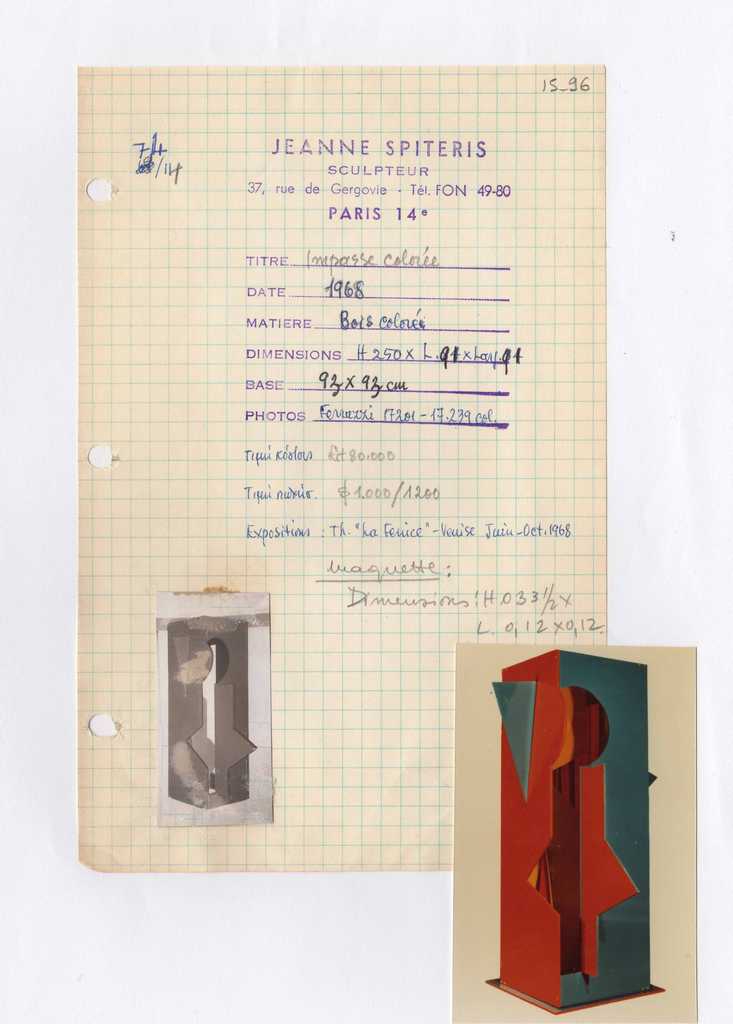 15_96
74
/14
JEANNE SPITERIS
SCULPTEUR
37, rue de Gergovie - Tél. FON 49-80
PARIS 14e
TITRE Impasse colorée
DATE 1968
MATIERE Bois colorée
DIMENSIONS H 250 x L. 91 x Lar. 91
BASE 93 x 93 cm
PHOTOS Ferruzzi 17201 - 17.239 col.
Τιμή κόστους Lit 80.000
Τιμή $ 1.000/1200
Expositions : Th. "La Fenice" - Venise Juin-Oct. 1968
Maquette :
Dimensions : H 0 33 1/2 x
L. 0,12 x 0,12.